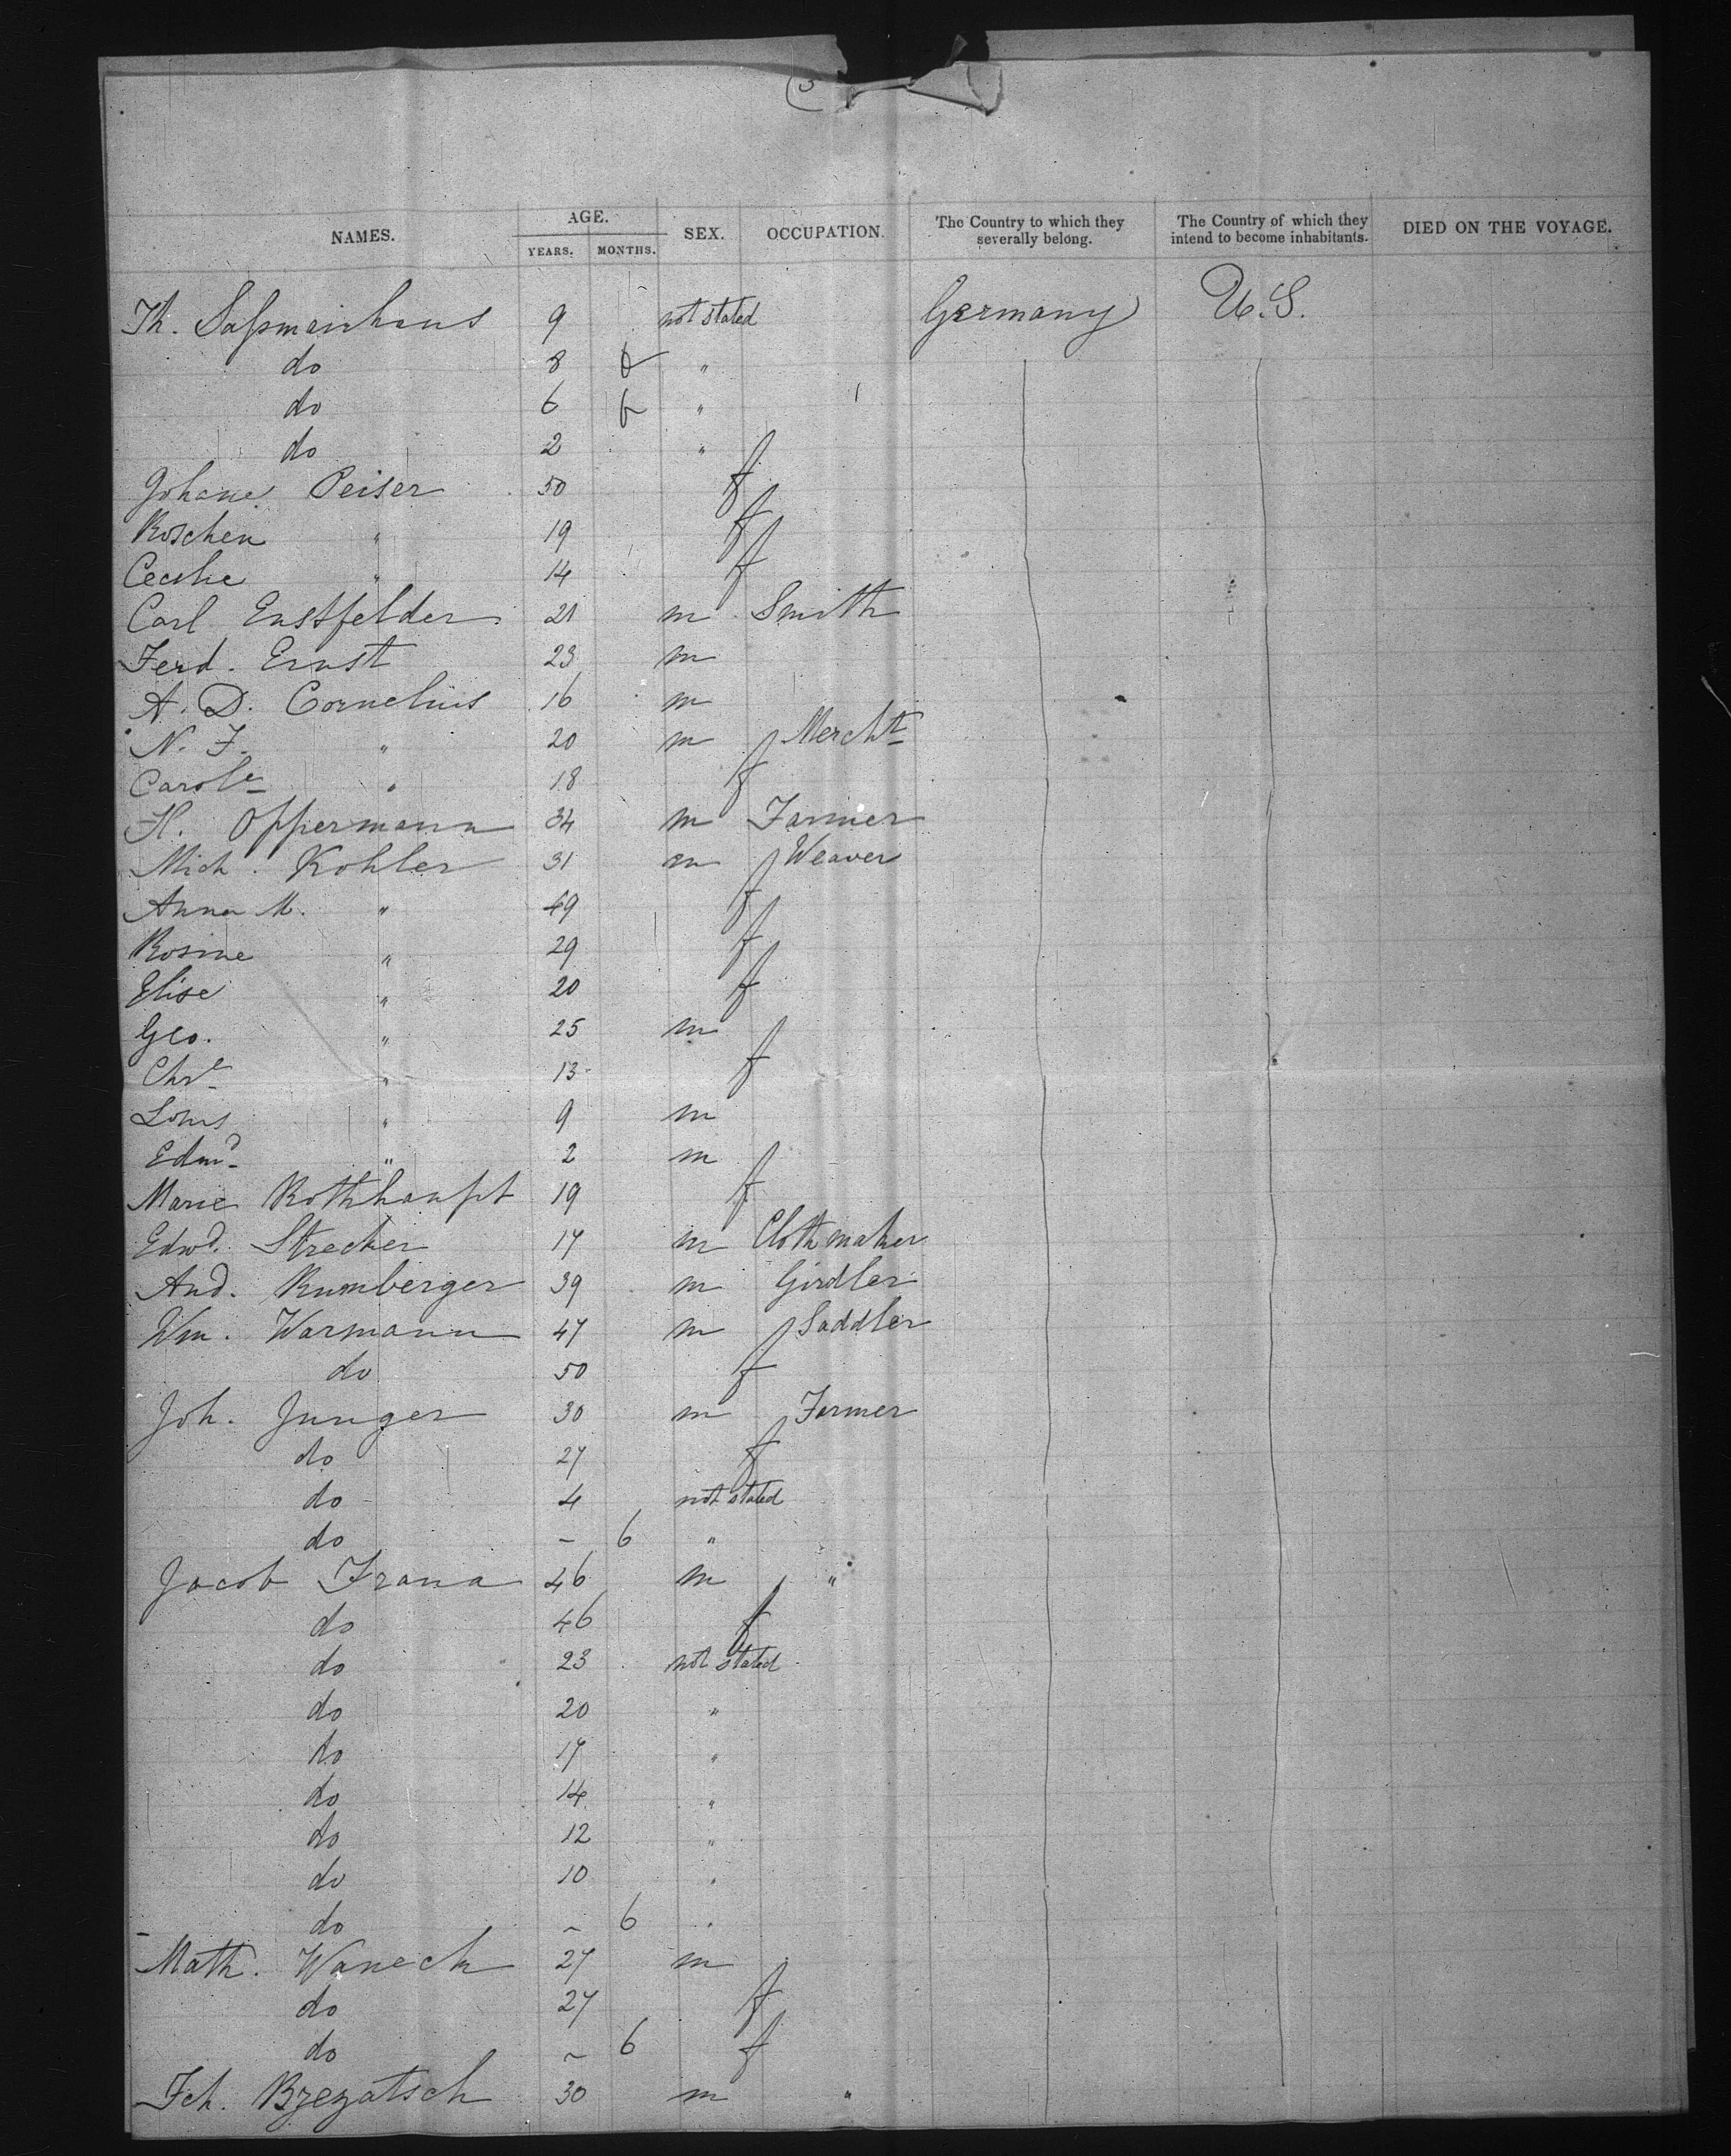 (3
NAMES. AGE. YEARS. MONTHS. SEX. OCCUPATION. The Country to which they severally belong. The Country of which they intend to become inhabitants. DIED ON THE VOYAGE.
Th. Saßmanhaus 9 not stated Germany U.S.
do 8 "
do 6 "
do 2 "
Johane Peiser 50 f
Roschen " 19 f
Cecilie " 14 f
Carl Enstfelder 21 m Smith
Ferd. Ernst 23 m
A. D. Cornelius 16 m
N. F. " 20 m Mercht
Carole " 18 f
H. Oppermann 34 m Farmer
Mich. Kohler 31 m Weaver
Anna M. " 49 f
Rosine " 29 f
Elise " 20 f
Geo. " 25 m
Chre " 13 f
Louis " 9 m
Edmd " 2 m
Marie Rothhaupt 19 f
Edwd. Strecker 17 m Cloth maker
And. Rumberger 39 m Girdler
Wm. Warmann 47 m Saddler
do 50 f
Joh. Junger 30 m Farmer
do 27 f
do 4 not stated
do – 6 "
Jacob Frana 46 m "
do 46 f
do 23 not stated
do 20 "
do 17 "
do 14 "
do 12 "
do 10 "
do – 6 "
Math. Waneck 27 m
do 27 f
do – 6 f
Fch. Bzezatsch 30 m "